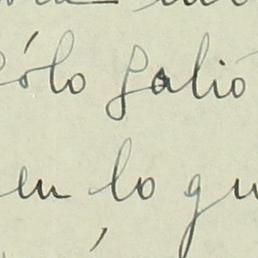 sólo salió
en lo qu